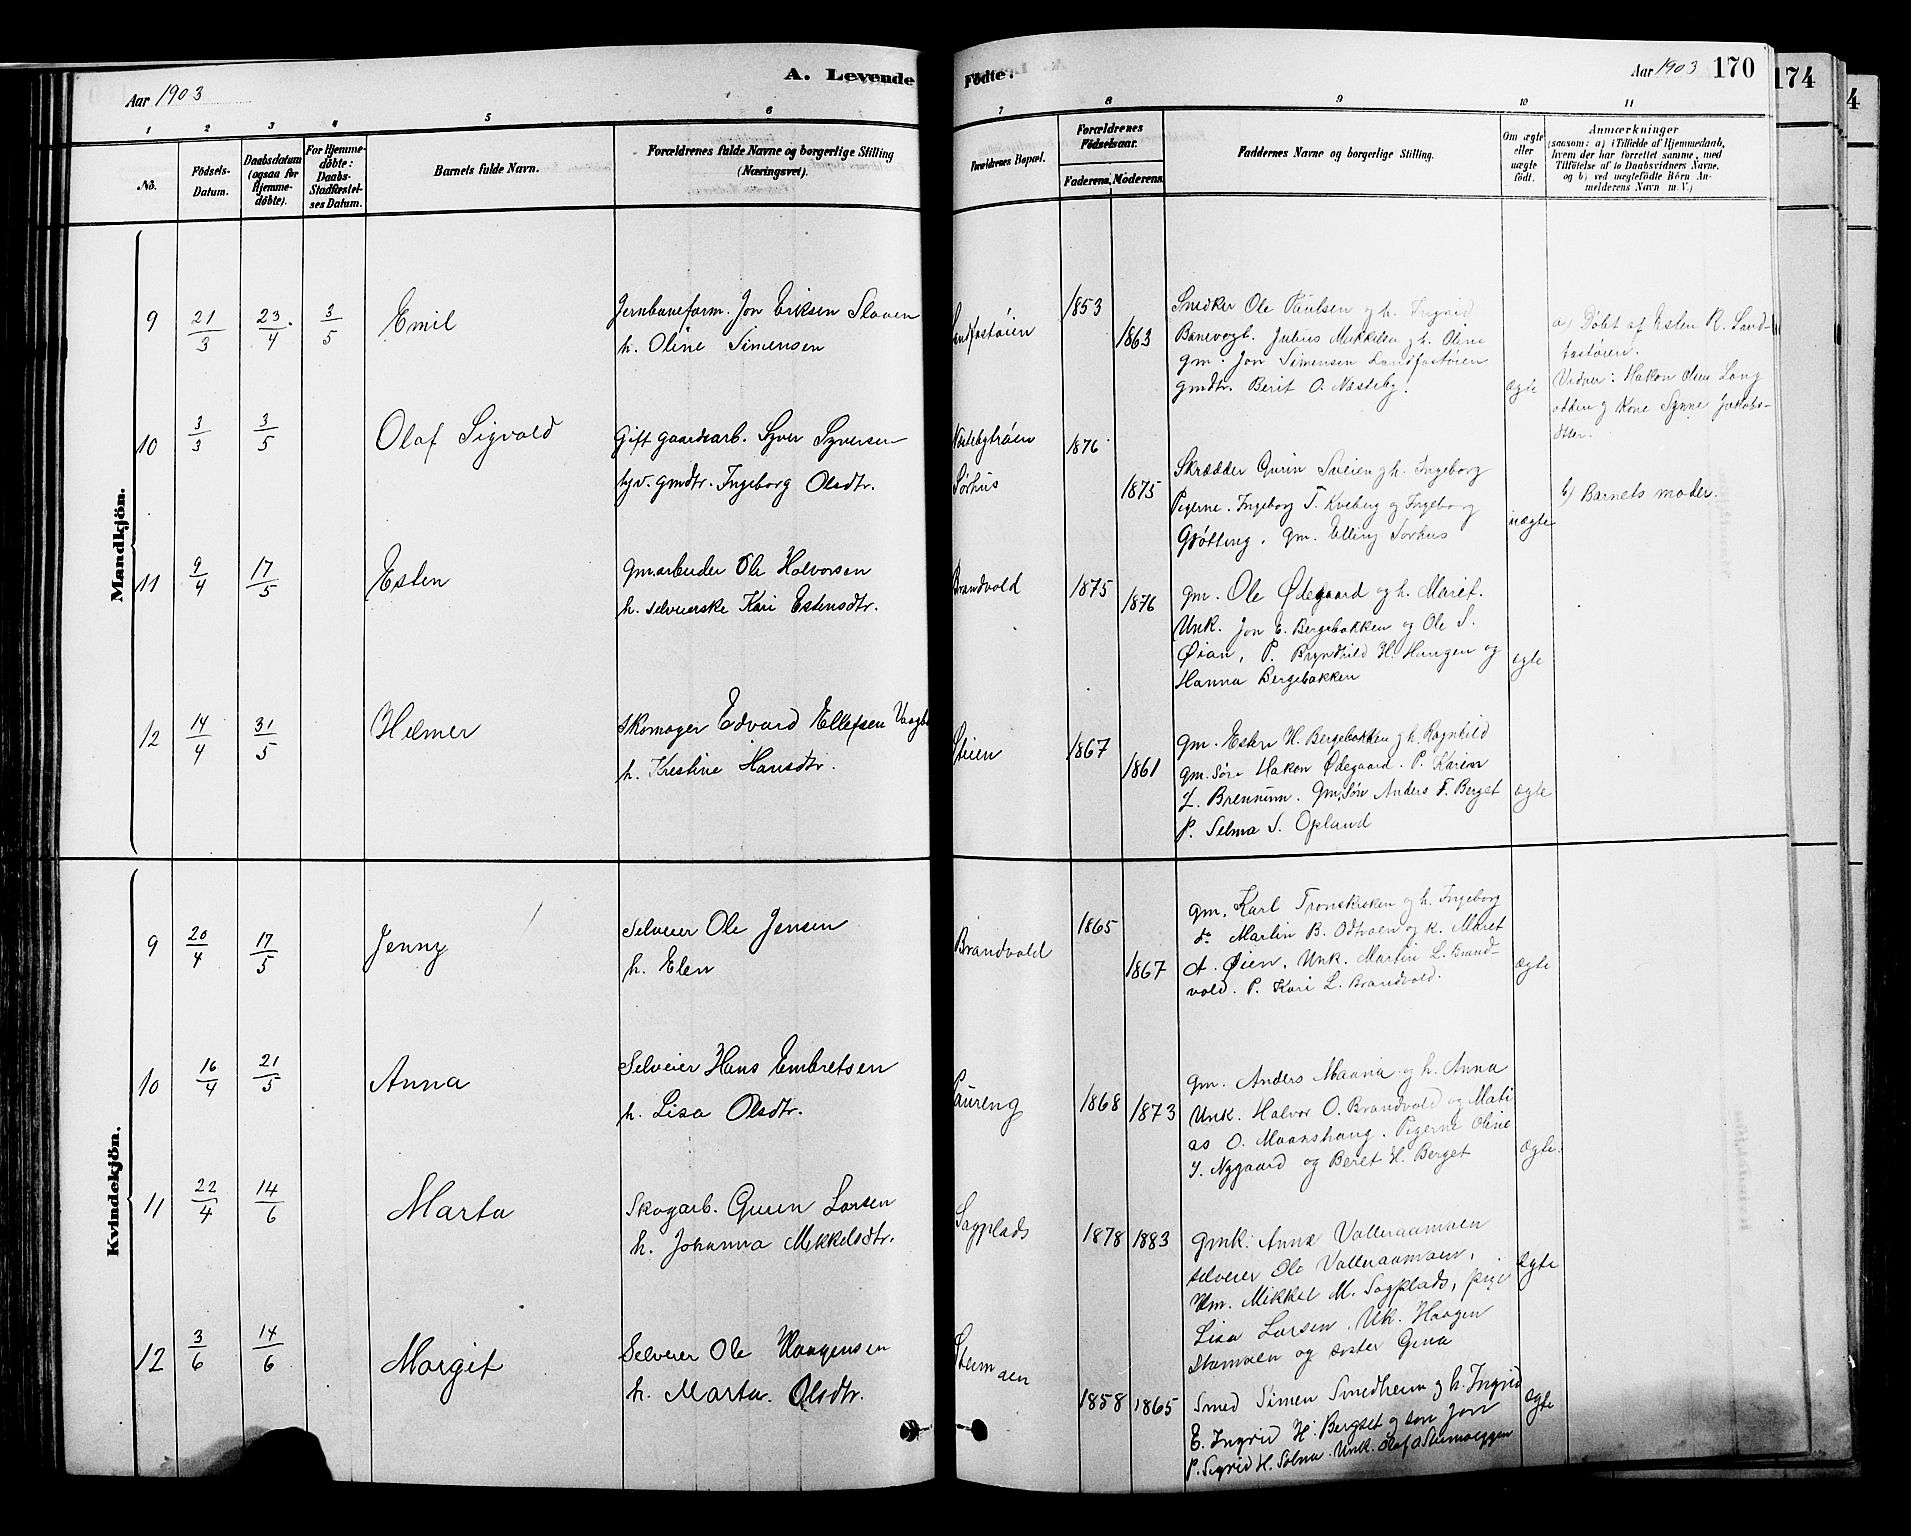 A. Levende Fødte.
Aar 1903
Aar 1903 170
174
4
1 2 3 4 5 6 7 8 9 10 11
No.
Fødsels-Datum.
Daabsdatum (ogsaa for Hjemme-døbte).
For Hjemme-døbte: Daabs-Stadfæstel-ses Datum.
Barnets fulde Navn.
Forældrenes fulde Navne og borgerlige Stilling (Næringsvei).
Forældrenes Bopæl.
Forældrenes Fødselsaar.
Faderens. Moderens.
Faddernes Navne og borgerlige Stilling.
Om ægte eller uægte født.
Anmærkninger
(saasom: a) i Tilfælde af Hjemmedaab,
hvem der har forrettet samme, med
Tilføielse af to Daabsvidners Navne,
og b) ved uægtefødte Børn An-
melderens Navn m. V.)
Mandkjön.
9 21/3 23/4 3/5 Emil
Jernbaneform. Jon Eriksen Sloven
h. Oline Simensen
Landfastøien
1853 1863
Snedker Ole Paulsen og h. Ingrid
Banevogt. Julius Mikkelsen og h. Oline
gm. Jon Simensen Landfastøien
gmdtr. Berit O. Næsteby.
ægte
a) Døbt af Esten K. Land-
fastøien.
Vidner: Hakon Olsen Lang
odden og Kone Synne Jakobs-
dtter.
10 3/3 3/5 Olaf Sigvald
Gift gaardsarb. Syver Syversen
tjv. gmdtr. Ingeborg Olsdtr.
Næstebytrøen
Sørhus
1876 1875
Skrædder Gurin Sveien og h. Ingeborg
Pigerne. Ingeborg T. Kveberg og Ingeborg
Gjøtting. gm. Elling Sørhus
uægte
b) Barnets moder.
11 9/4 17/5 Esten
gm.arbeider Ole Halvorsen
h. selveierske Kari Estensdtr.
Brandvold
1875 1876
gm. Ole Ødegaard og h. Marit.
Unk. Jon E. Bergebakken og Ole S.
Øian, P. Bryndhild H. Haugen og
Hanna Bergebakken
ægte
12 14/4 31/5 Helmer
Skomager Edvard Ellefsen
h. Kristine Hansdtr.
Steien
1867 1861
gm. Esten H. Bergebakken og h. Ragnhild
gm. søn Hakon Ødegaard. P. Karen
L. Brennmn. Gm. søn Anders F. Berget
P. Selma S. Opland
ægte
Kvindekjön.
9 20/4 17/5 Jenny
Selveier Ole Jensen
h. Elen
Brandvold
1865 1867
gm. Karl Tronskroken og h. Ingeborg
do Martin B. Odtvoen og k. Maret
A. Øien, Unk. Martin L. Brand-
vold. P. Kari L. Brandvold.
ægte
10 16/4 21/5 Anna
Selveier Hans Embretsen
h. Lisa Olsdtr.
Paureng
1868 1873
gm. Anders Maana og h. Anna
Unk. Halvor O. Brandvold og Mati
as O. Maanshaug. Pigerne Oline
J. Nygaard og Beret H. Berget
ægte.
11 22/4 14/6 Marta
Skogarb. Guren Larsen
h. Johanna Mikkelsdtr.
Sagplads
1878 1883
gmk. Anna Valleraamoen
selveier Ole Valleraamoen,
Um. Mikkel M. Sagplads, pige
Lisa Larsen. Uk. Haagen
Stamoen og søster Gina
ægte
12 3/6 14/6 Margit
Selveier Ole Haagensen
h. Marta Olsdtr.
Steimoen
1858 1865
Smed Simen Smedheim og h. Ingrid
E. Ingrid H. Bergset og søn Jon
P. Sigrid H. Solna. Unk. Olaf O Steimoeggen
ægte